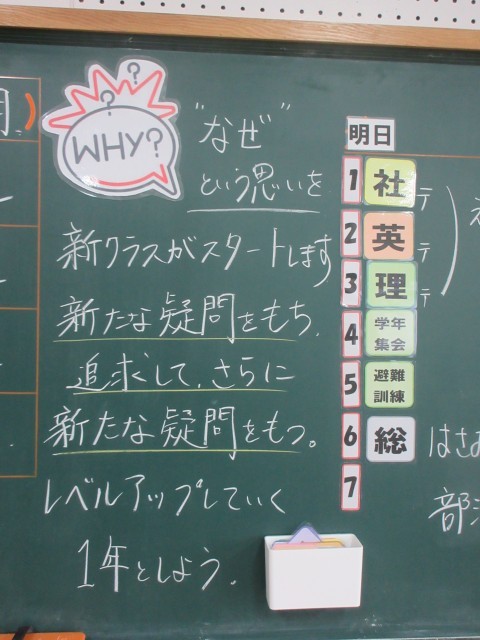 ?
?
WHY?
"なぜ"
という思いを
新クラスがスタートします
新たな疑問をもち、
追求して、さらに
新たな疑問をもつ。
レベルアップしていく
1年としよう。
明日
1 社 テ
2 英 テ
3 理 テ
4 学年集会
5 避難訓練
6 総
7
はさ
部